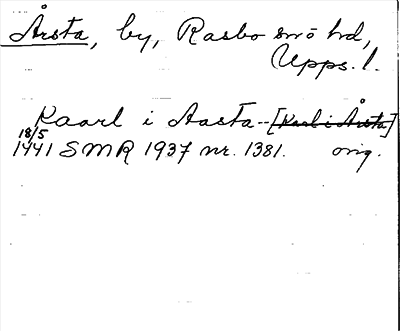 Årsta, by, Rasbo snö hd,
Upps. l.
Kaarl i Aasta -- [Karl i Årsta]
18/5
1441 SMR 1937 nr. 1381. orig.